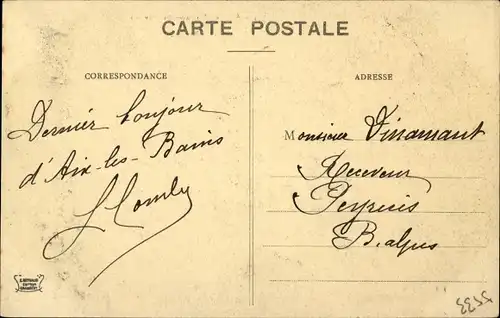 CARTE POSTALE
CORRESPONDANCE
Dernier bonjour
d'Aix-les-Bains
ADRESSE
Monsieur Vinamant
Receveur
Peyruis
B. alpes